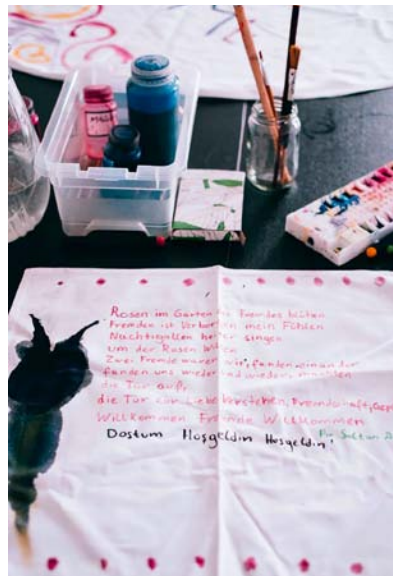 MAGE
Rosen im Garten des Fremdes blühen
Fremden ist Verboten mein Fühlen
Nachtigallen singen
um der Rosen Willen
Zwei Fremde waren wir, fanden einander
fanden uns wieder und wieder, machten
die Tür auf,
die Tür von Liebe, Verstehen, Freundschaft,
Willkommen Freunde Willkommen
Dostum Hoşgeldin Hoşgeldin!
Pir Sultan